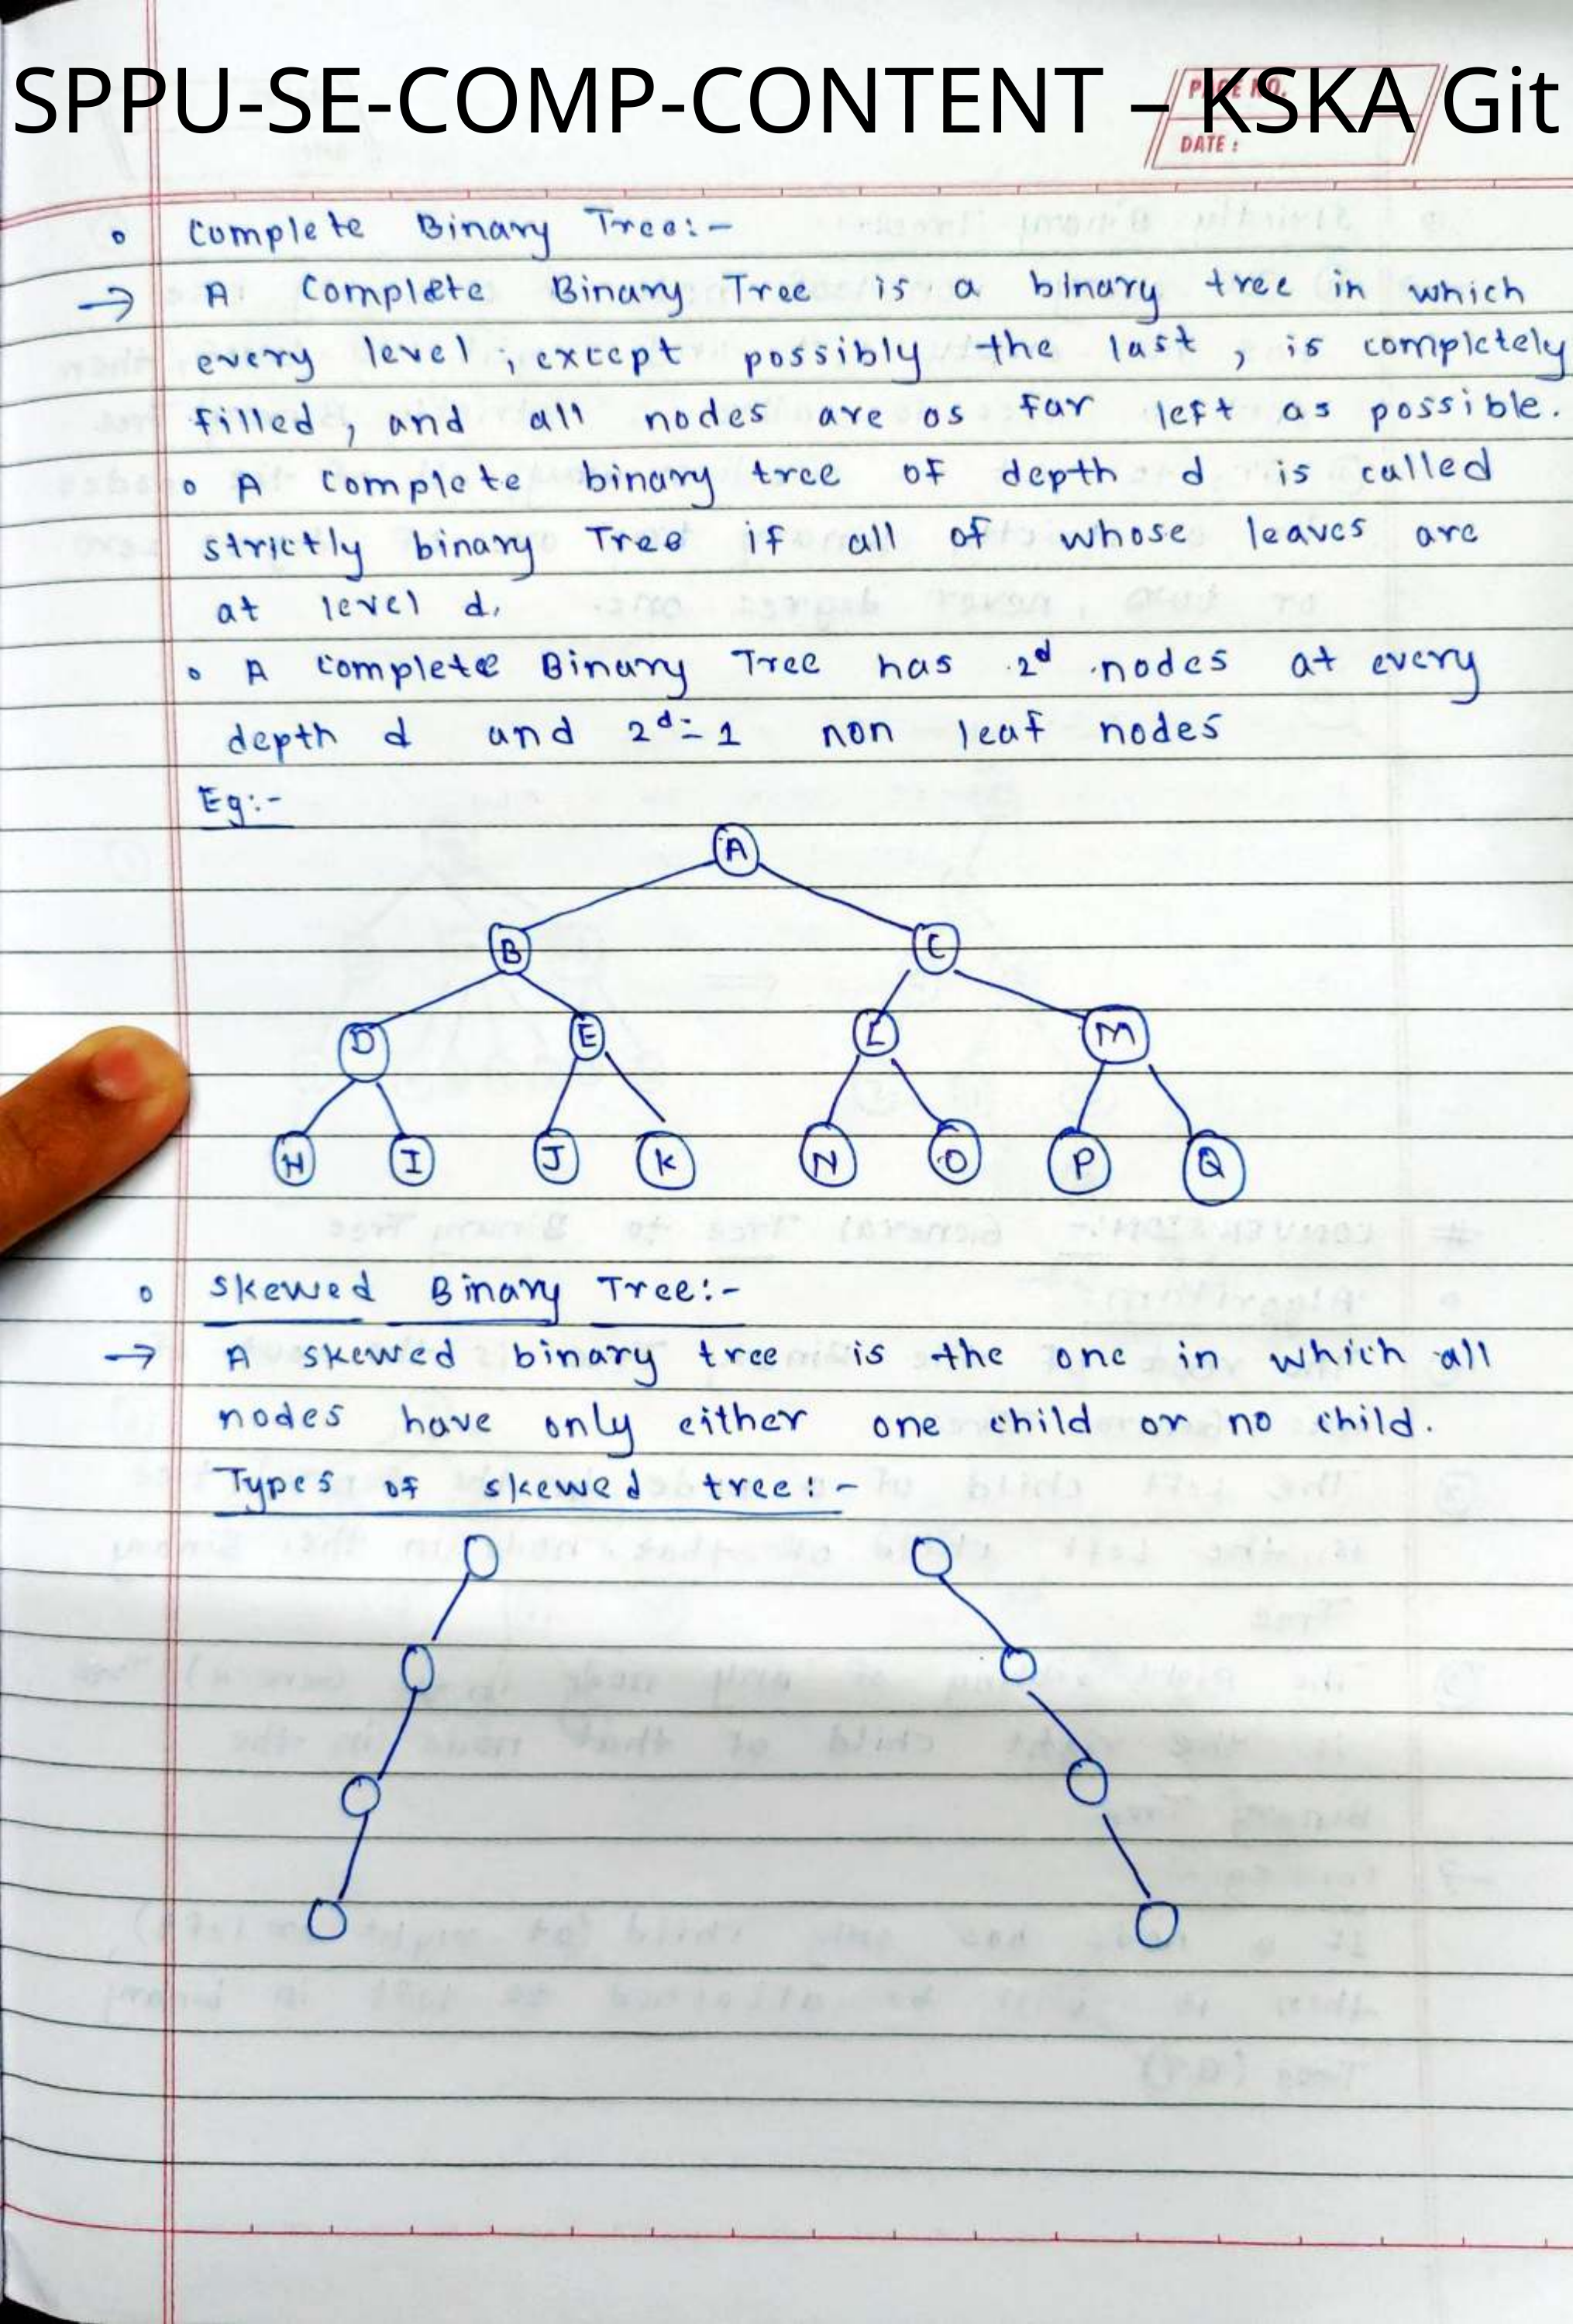 SPPU-SE-COMP-CONTENT – KSKA Git
PAGE NO.
DATE :
Complete Binary Tree:-
→ A Complete Binary Tree is a binary tree in which
every level, except possibly the last, is completely
filled, and all nodes are as far left as possible.
o A Complete binary tree of depth d is called
strictly binary Tree if all of whose leaves are
at level d.
o A Complete Binary Tree has 2^d nodes at every
depth d and 2^d-1 non leaf nodes
Eg:-
A
B C
D E L M
H I J K N O P Q
o Skewed Binary Tree:-
→ A skewed binary tree is the one in which all
nodes have only either one child or no child.
Types of skewed tree:-